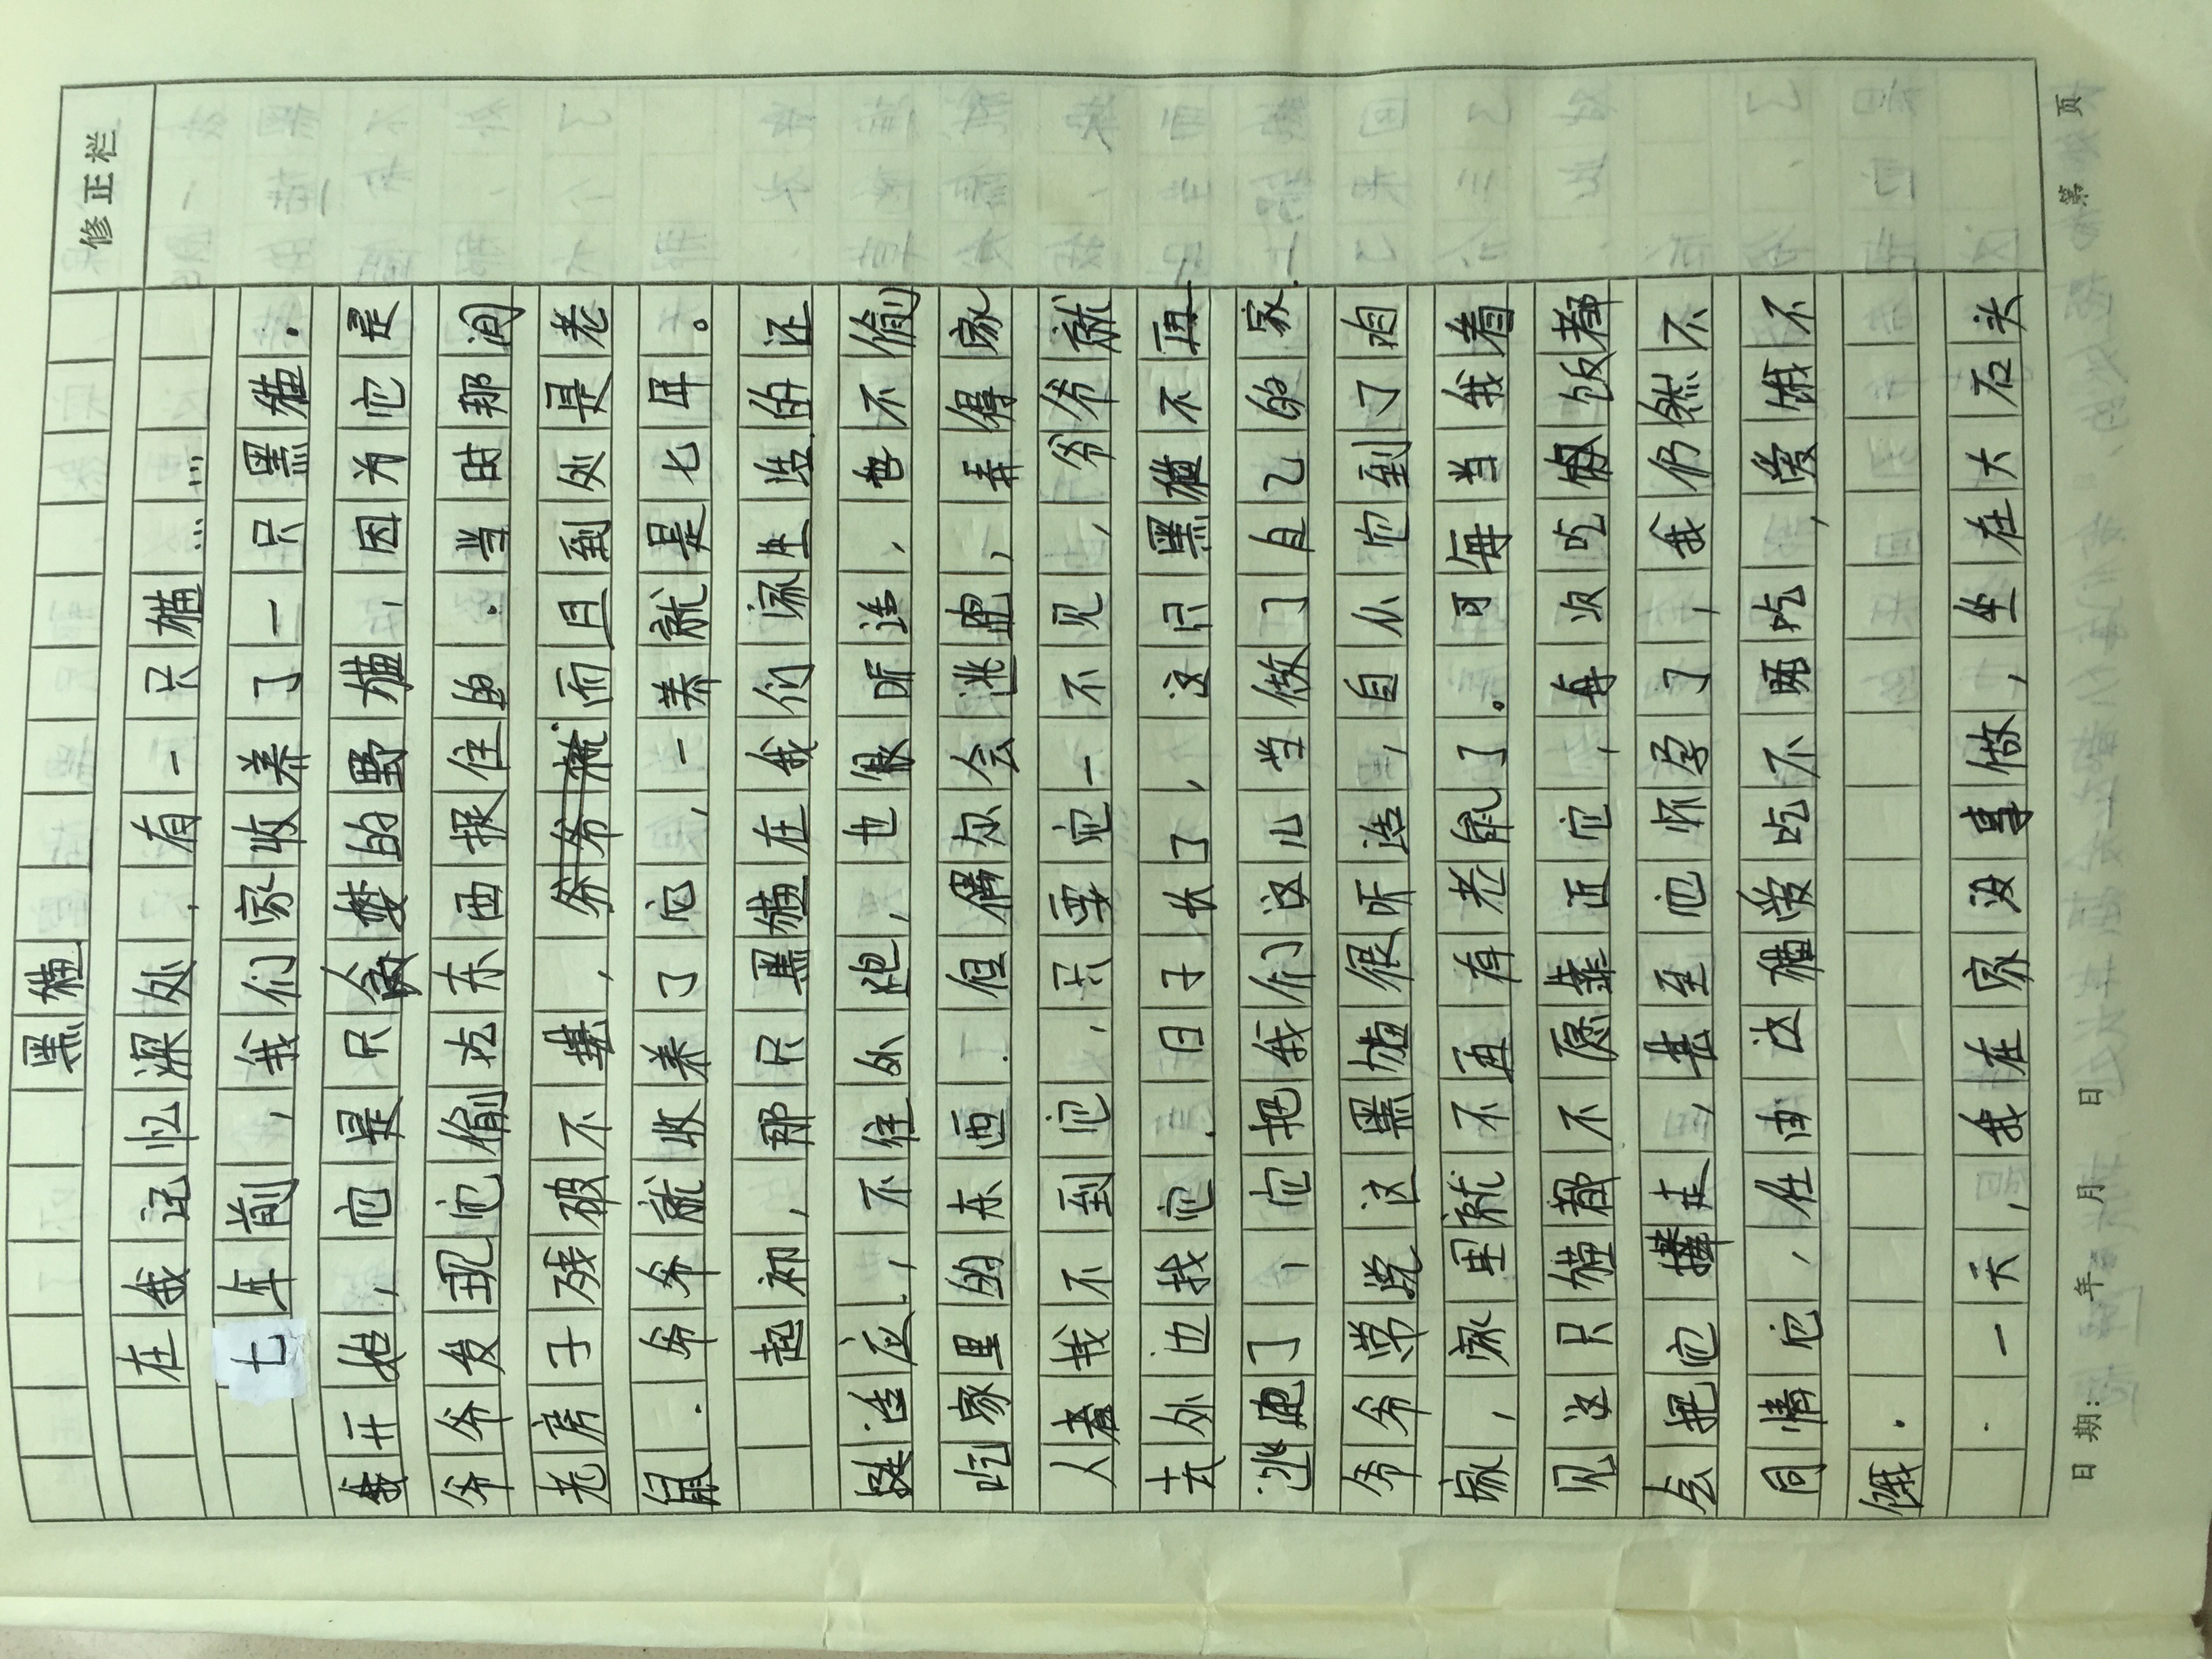 修正栏
黑猫
在我记忆深处，有一只猫……
七年前，我们家收养了一只黑猫.
我开始，它是只贪婪的野猫，因为它是
爷爷发现它偷吃东西捉住的.当时那间
老房子残破不堪，爷爷就而且到处是老
鼠.爷爷就收养了它，一养就是七年。
起初，那只黑猫在我们家生活的还
挺适应，不往外跑，也很听话，也不偷
吃家里的东西.但偶尔会逃跑，弄得家
人都找不到它.只要它一不见，爷爷就
去外边找它.日子长了，这只黑猫不再
逃跑了，它把我们这儿当做了自己的家.
爷爷常说这黑猫很听话，自从它到了咱
家，家里就不再有老鼠了。可每当我看
见这只猫都不愿靠近它，每次吃饭都
会把它撵走，甚至它怀孕了，我仍然不
同情它，任由这猫爱吃不吃，爱饿不
饿.
一天，我在家没事做，坐在大石头
日期: 年 月 日 第 页